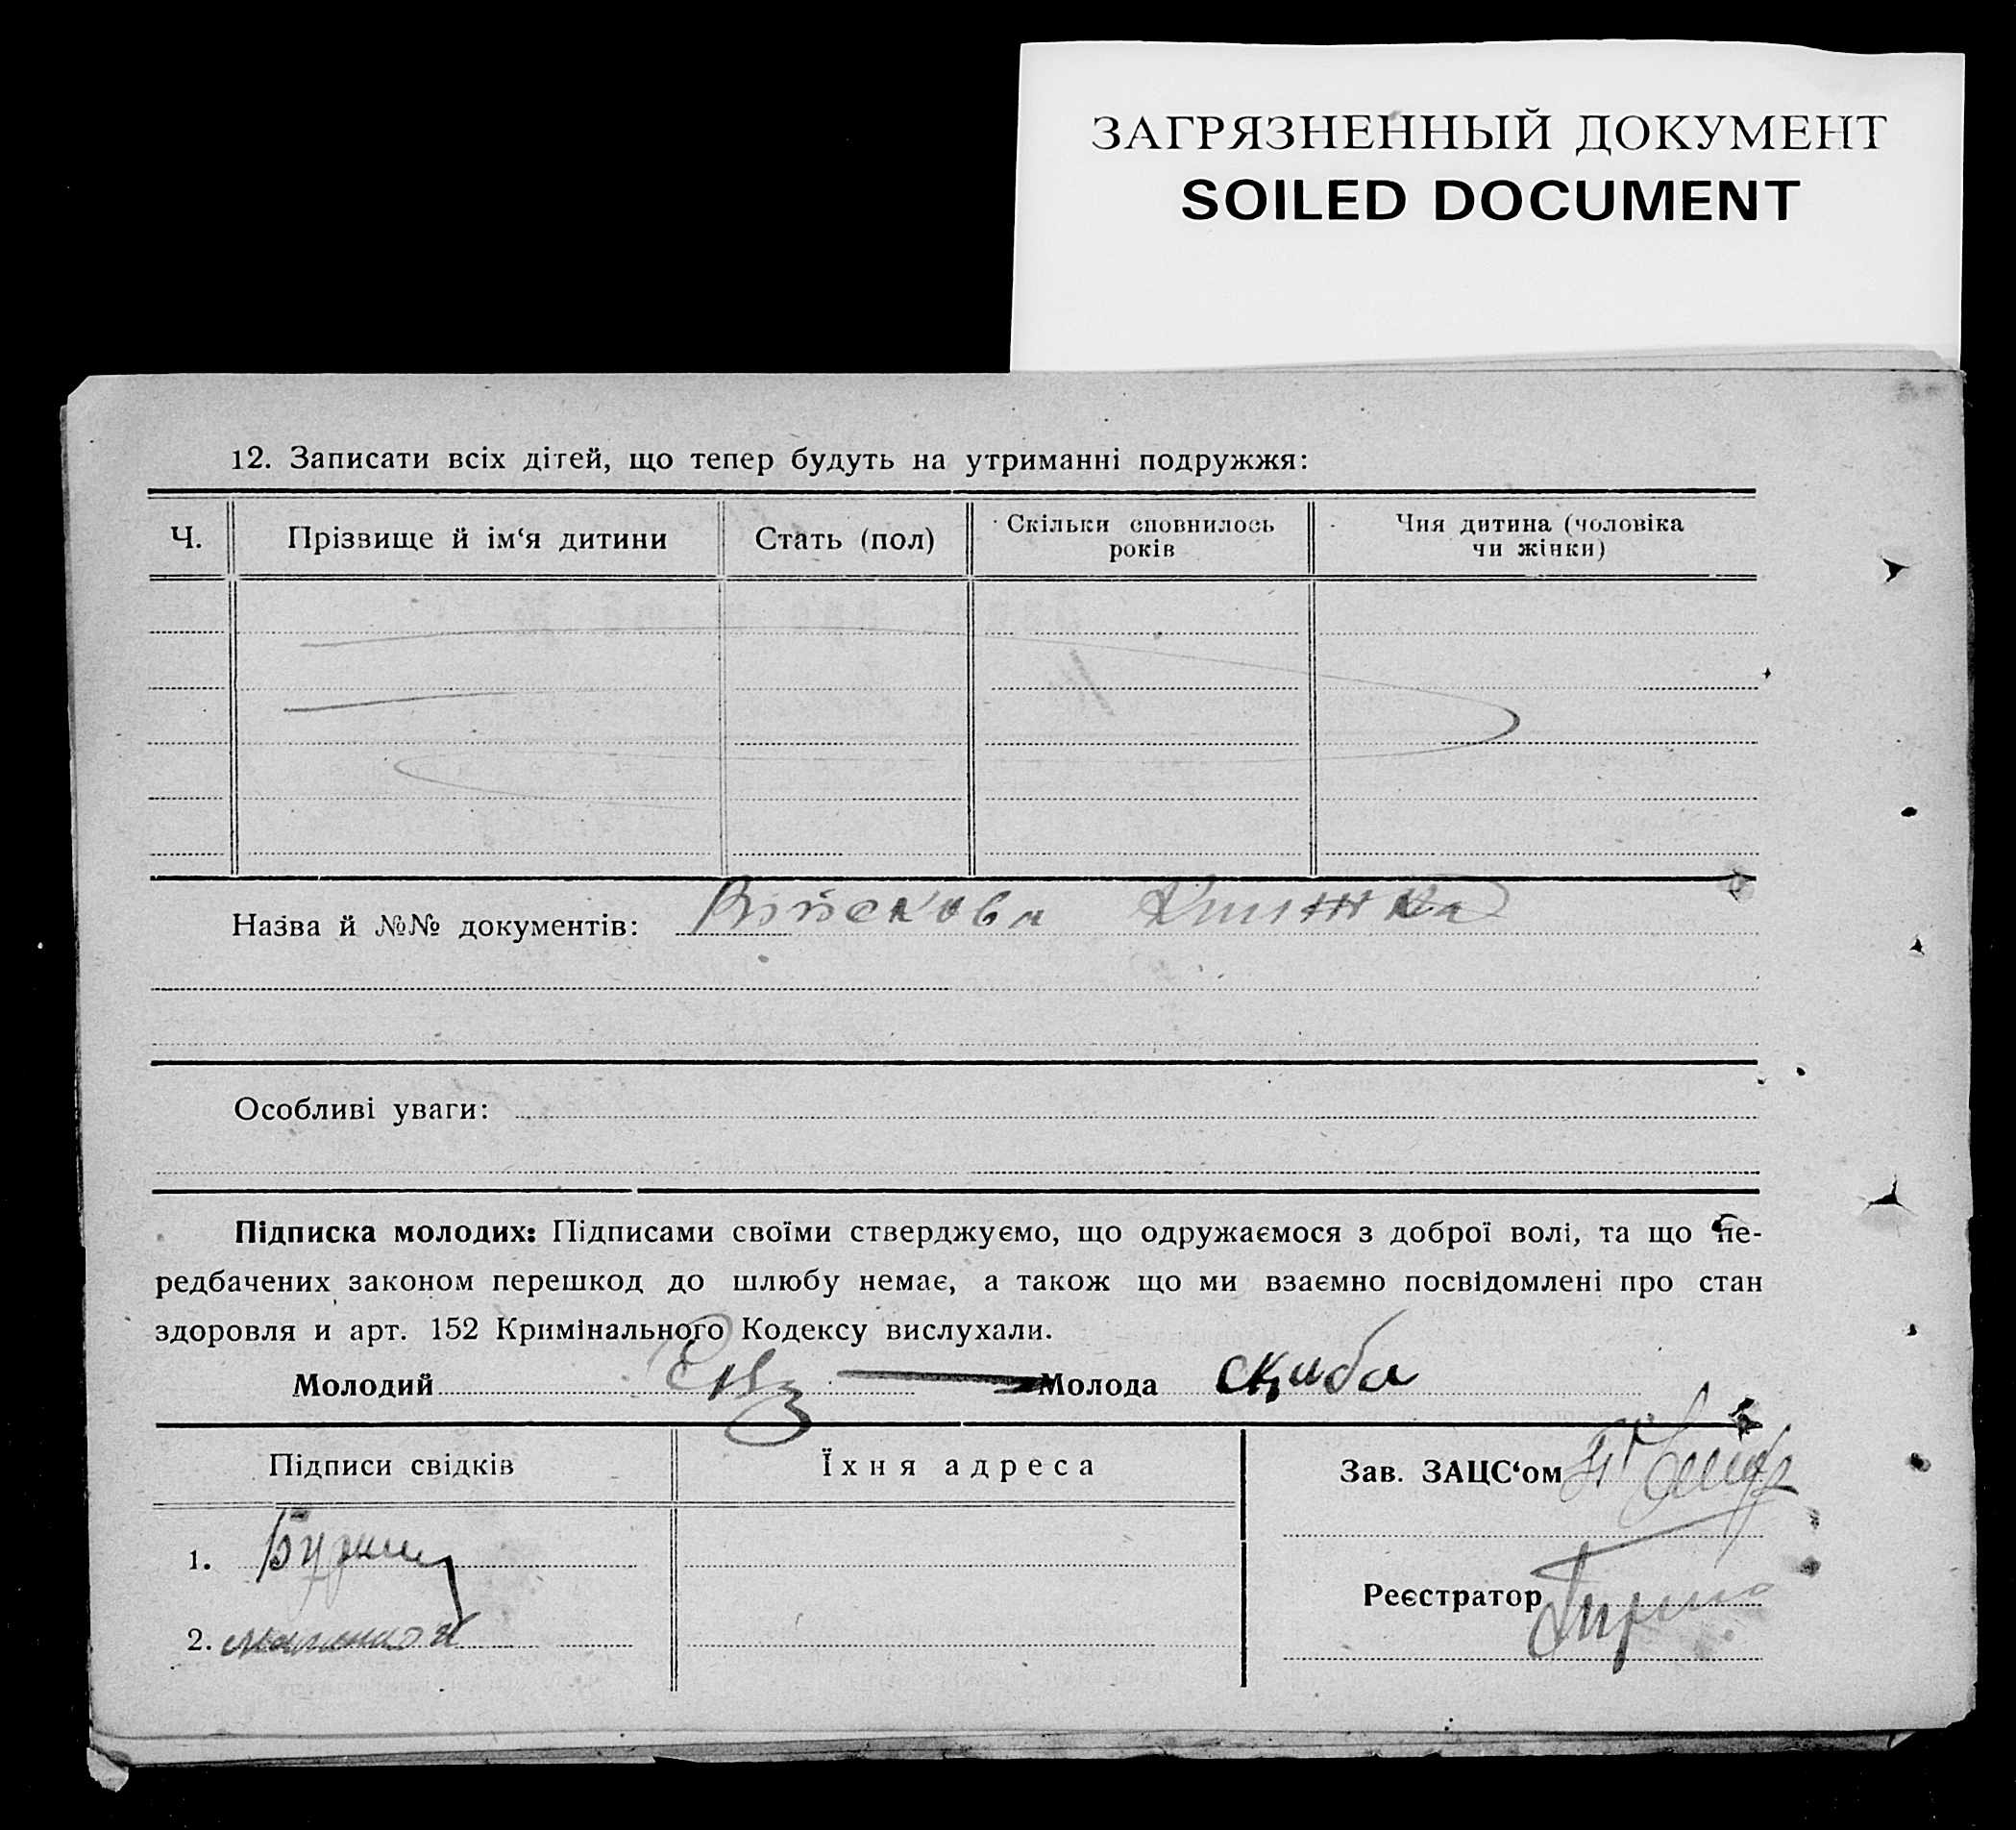 ЗАГРЯЗНЕННЫЙ ДОКУМЕНТ
SOILED DOCUMENT
12. Записати всіх дітей, що тепер будуть на утриманні подружжя:
Ч. Прізвище й ім‘я дитини Стать (пол) Скільки сповнилось років Чия дитина (чоловіка чи жінки)
Назва й №№ документів: Війскова Книжка
Особливі уваги:
Підписка молодих: Підписами своїми стверджуємо, що одружаємося з доброї волі, та що пе-
редбачених законом перешкод до шлюбу немає, а також що ми взаємно посвідомлені про стан
здоровля и арт. 152 Кримінального Кодексу вислухали.
Молодий Молода скиба
Підписи свідків Їхня адреса Зав. ЗАЦС‘ом
1.
Реєстратор
2.